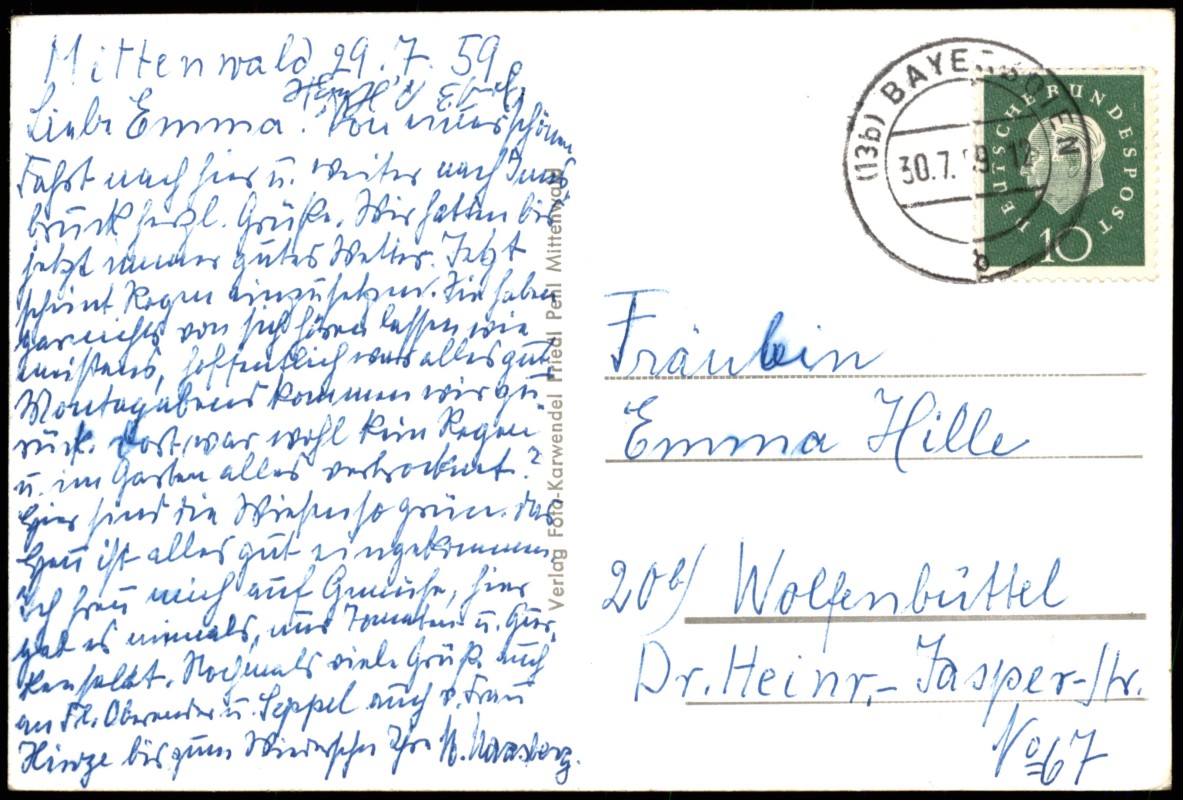 Mittenwald 29.7.59
Liebe Emma! Von einer schönen
Fahrt nach hier u. weiter nach Inns
bruck herzl. Grüße. Wir hatten bis
jetzt immer gutes Wetter. Jetzt
scheint Regen einzusetzen. Sie haben
garnichts von sich hören lassen wie
meistens, hoffentlich war alles gut
Montagabend kommen wir zu
rück. Dort war wohl kein Regen
u. im Garten alles vertrocknet?
Hier sind die Wiesen so grün. das
Heu ist alles gut eingekommen
Ich freu mich auf Gemüse, hier
gab es niemals, nur Tomaten u. Gur,
kensalat. Nochmals viele Grüße auch
an Frl. u. Seppel auch v. Frau
Hinze bis zum Wiedersehn Ihre
Verlag Foto-Karwendel Friedl Pehl Mittenwald
(13b) BAYERSOIEN
30.7.59-12
b
DEUTSCHE BUNDESPOST
10
Fräulein
Emma Hille
20b/ Wolfenbüttel
Dr. Heinr.-Jasper-Str.
No 67